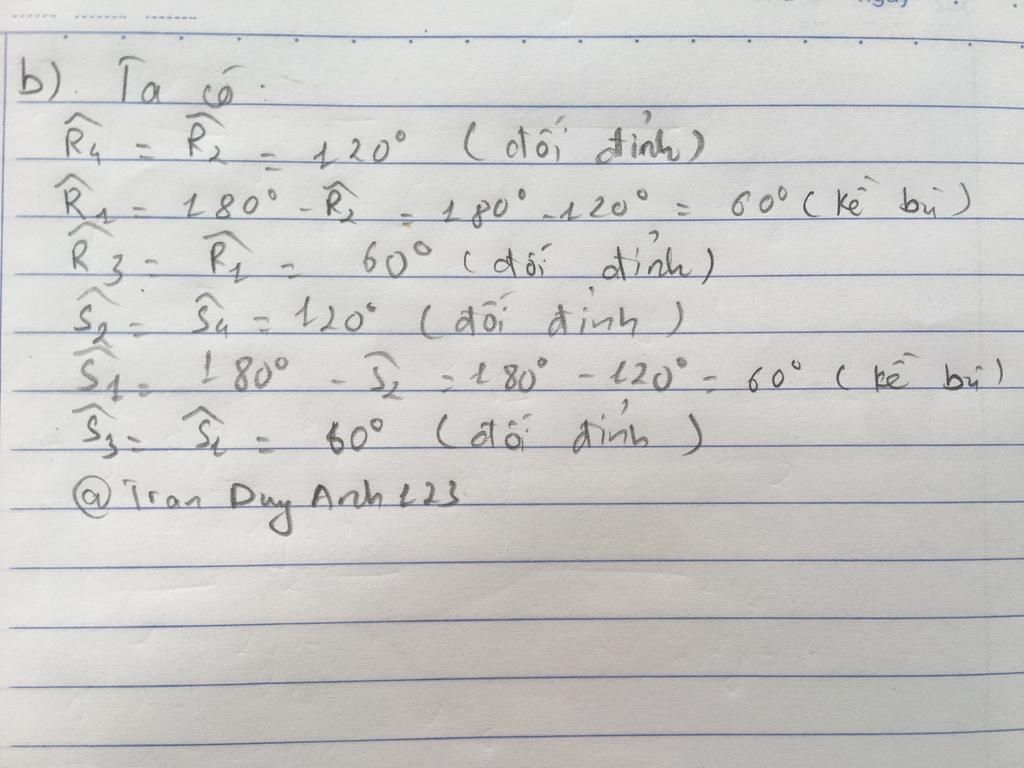 b). Ta có:
R̂₄ = R̂₂ = 120° (đối đỉnh)
R̂₁ = 180° - R̂₂ = 180° - 120° = 60° (kề bù)
R̂₃ = R̂₁ = 60° (đối đỉnh)
Ŝ₂ = Ŝ₄ = 120° (đối đỉnh)
Ŝ₁ = 180° - Ŝ₂ = 180° - 120° = 60° (kề bù)
Ŝ₃ = Ŝ₁ = 60° (đối đỉnh)
@Tran Duy Anh 123